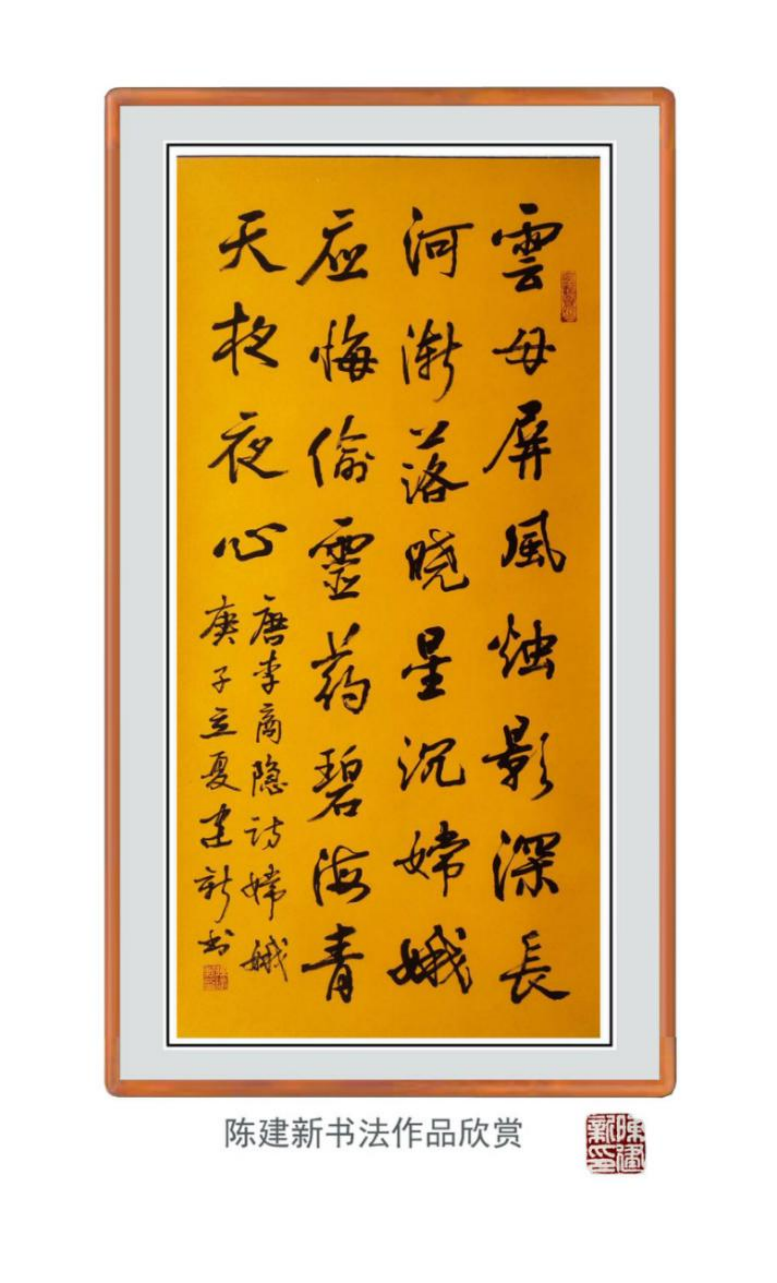 雲母屏風烛影深長
河漸落曉星沉嫦娥
应悔偷靈药碧海青
天夜夜心
唐李商隐诗嫦娥
庚子立夏建新书
陈建新书法作品欣赏
陳建新印